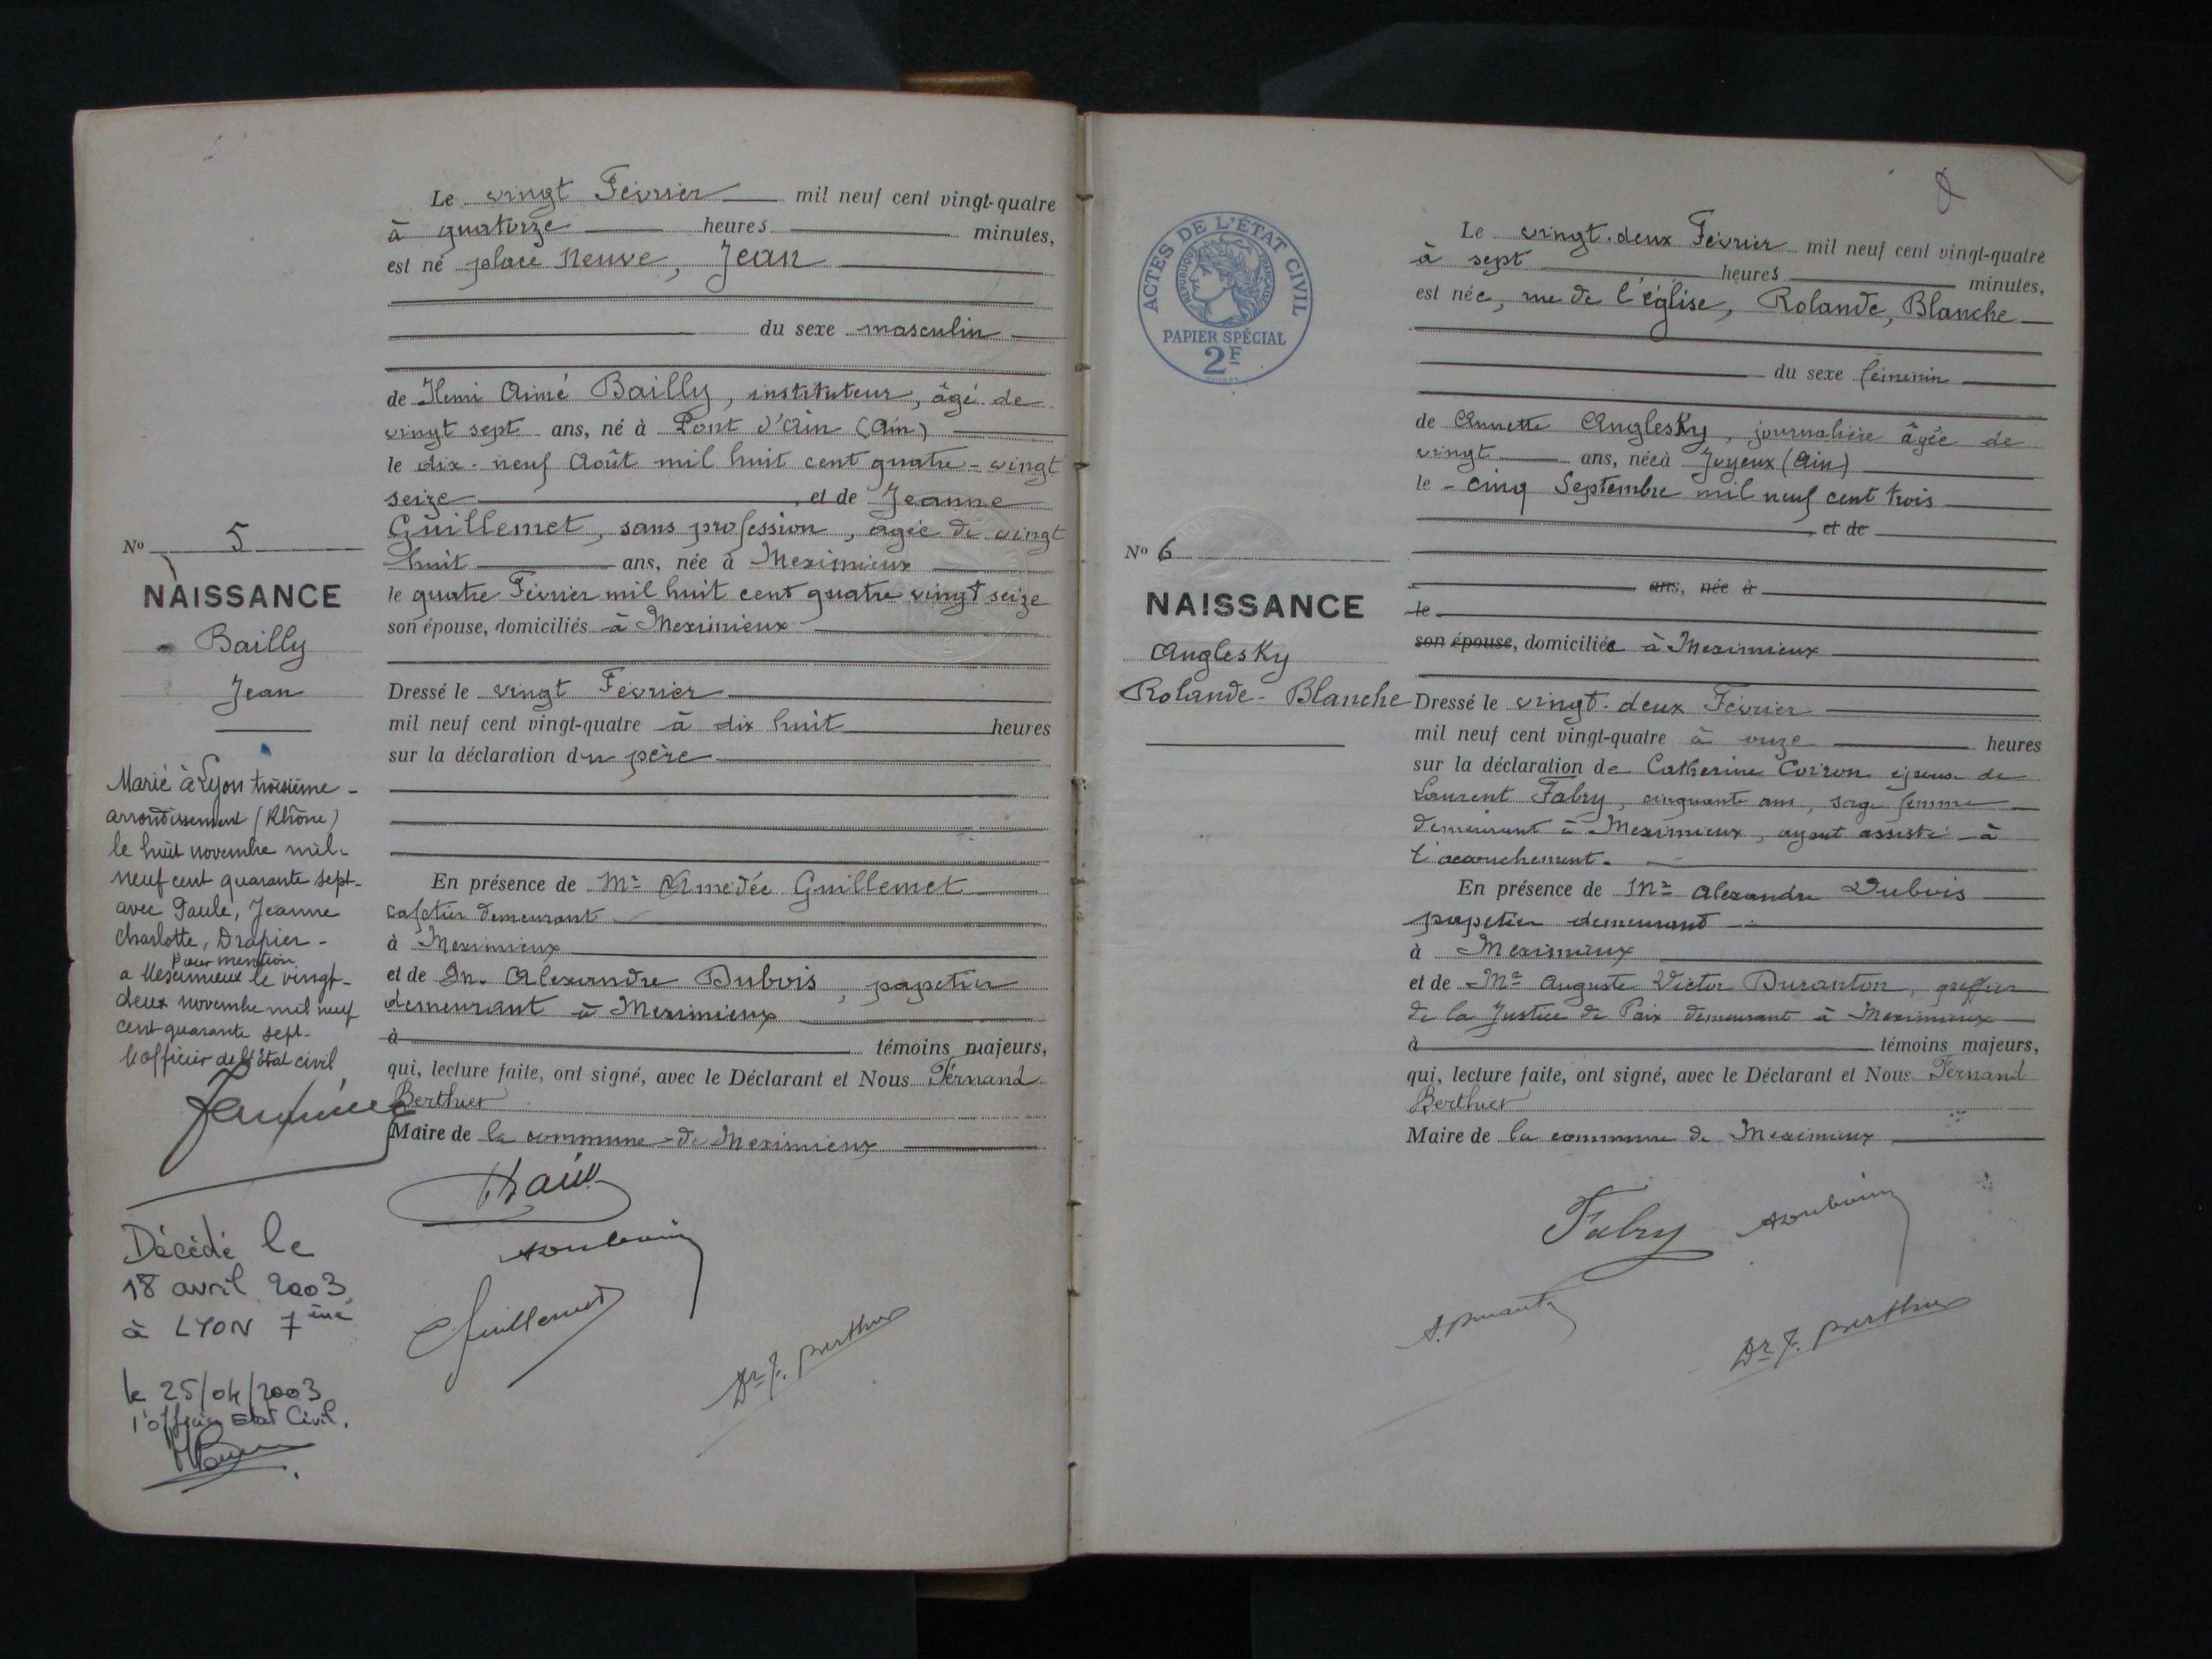 Le vingt Février mil neuf cent vingt-quatre
à quatorze heures minutes,
est né place Neuve, Jean
du sexe masculin
de Henri Aimé Bailly, instituteur, âgé de
vingt sept ans, né à Pont d'Ain (Ain)
le dix-neuf Août mil huit cent quatre-vingt
seize et de Jeanne
Guillemet, sans profession, agée de vingt
huit ans, née à Meximieux
le quatre Février mil huit cent quatre vingt seize
son épouse, domiciliés à Meximieux
Dressé le vingt Février
mil neuf cent vingt-quatre à dix huit heures
sur la déclaration du père
En présence de Mr Amedée Guillemet
cafetier demeurant
à Meximieux
et de M. Alexandre Dubois, papetier
demeurant à Meximieux
à témoins majeurs,
qui, lecture faite, ont signé, avec le Déclarant et Nous Fernand
Berthier
Maire de la commune de Meximieux
Guillemet
Dr F. Berthier
No 5
NAISSANCE
Bailly
Jean
Marié à Lyon troisième
arrondissement (Rhône)
le huit novembre mil
neuf cent quarante sept
avec Paule, Jeanne
Charlotte, Drapier -
Pour mention
a Meximieux le vingt-
deux novembre mil neuf
cent quarante sept.
l'officier de l'Etat civil
Décédé le
18 avril 2003
à LYON 7ème
le 25/04/2003
l'officier Etat Civil.
ACTES DE L'ÉTAT CIVIL
RÉPUBLIQUE FRANÇAISE
PAPIER SPÉCIAL
2F
No 6
NAISSANCE
Anglesky
Rolande-Blanche
Le vingt-deux Février mil neuf cent vingt-quatre
à sept heures minutes,
est née, rue de l'église, Rolande, Blanche
du sexe féminin
de Annette Anglesky, journalière âgée de
vingt ans, née à Joyeux (Ain)
le cinq Septembre mil neuf cent trois
et de
ans, née à
le
son épouse, domiciliée à Meximieux
Dressé le vingt-deux Février
mil neuf cent vingt-quatre à onze heures
sur la déclaration de Catherine Coiron épouse de
Laurent Fabry, cinquante ans, sage femme
demeurant à Meximieux, ayant assisté à
l'accouchement.
En présence de Mr Alexandre Dubois
papetier demeurant
à Meximieux
et de Mr Auguste Victor Duranton, greffier
de la Justice de Paix demeurant à Meximieux
à témoins majeurs,
qui, lecture faite, ont signé, avec le Déclarant et Nous Fernand
Berthier
Maire de la commune de Meximieux
Fabry
Dr F. Berthier